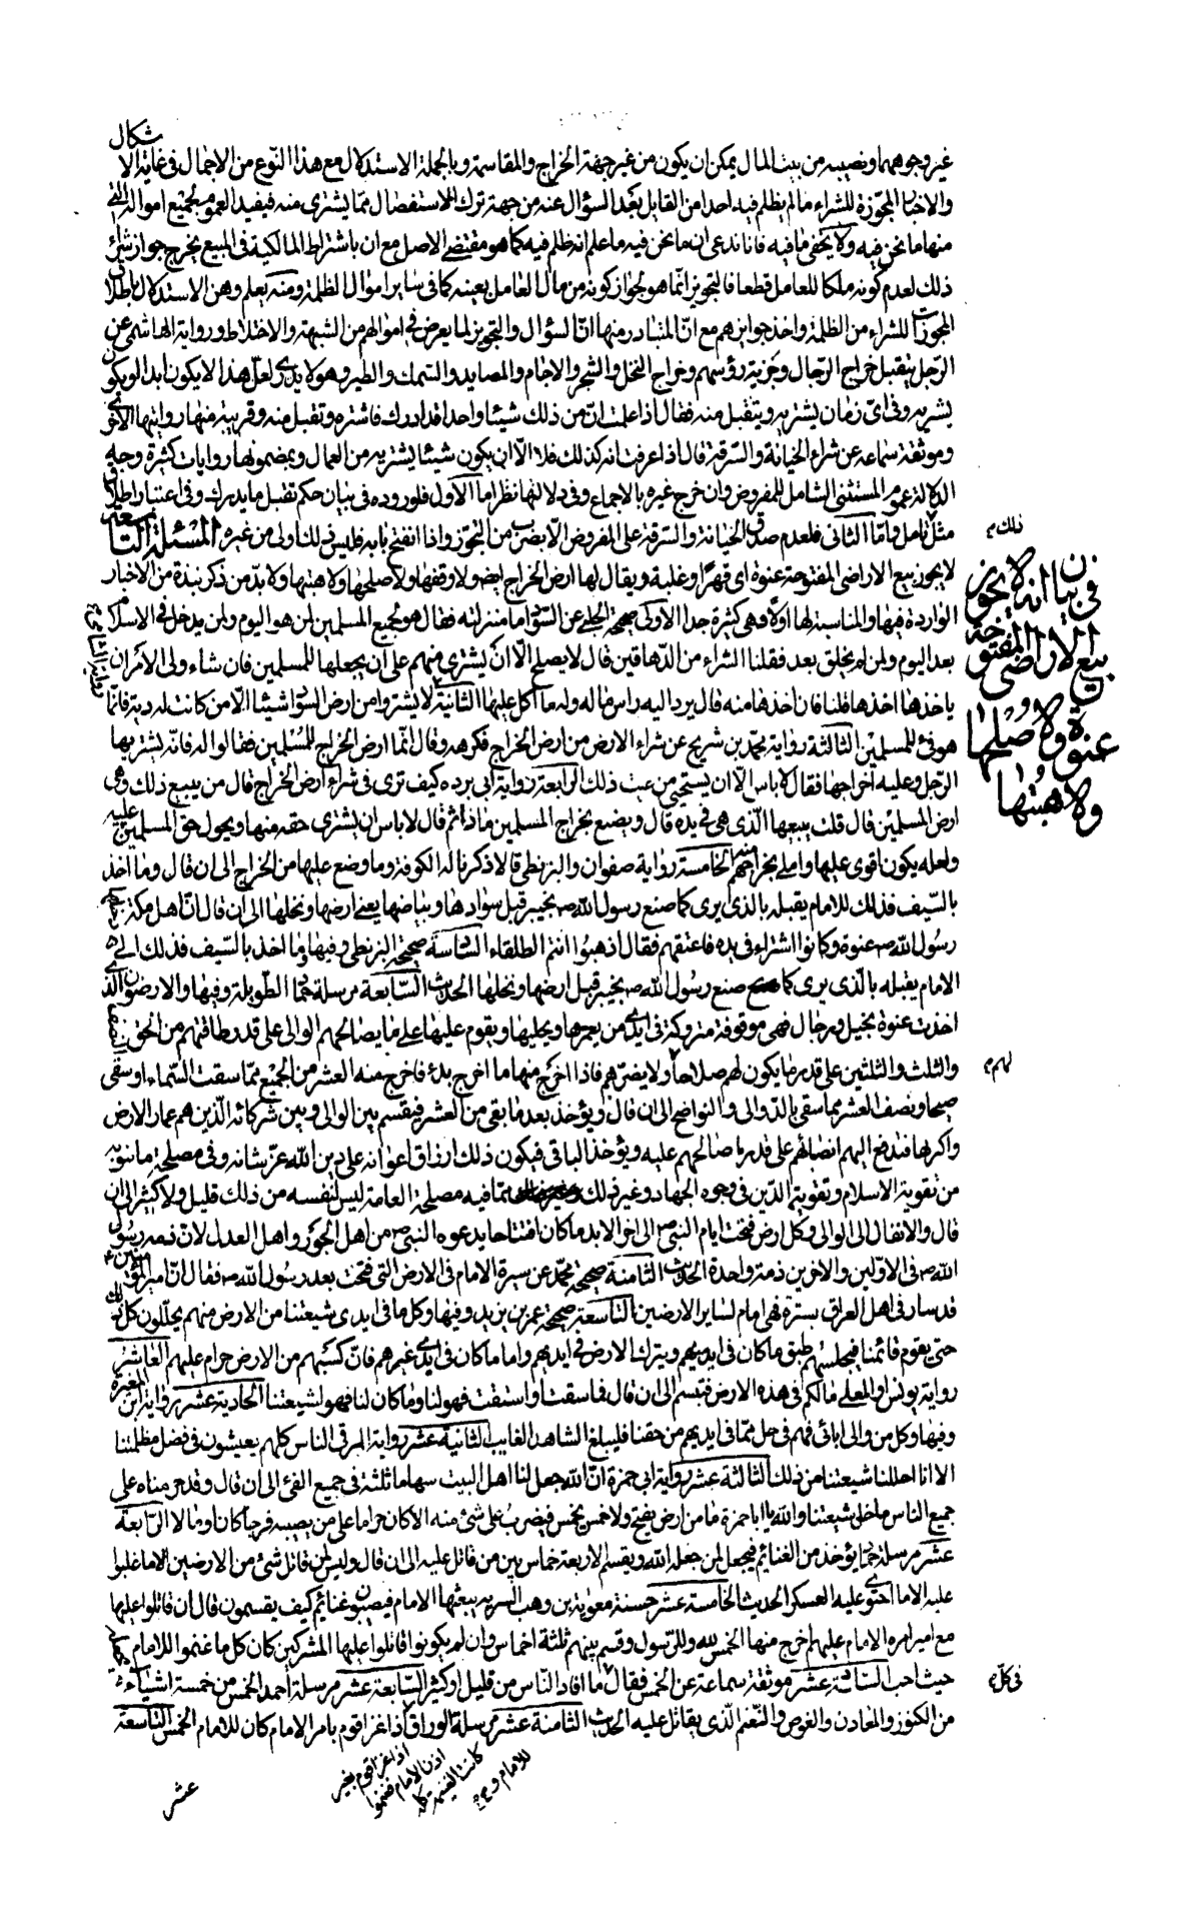 شكال
غير وجوههما ونصيبه من بيت المال يمكن ان يكون من غير جهة الخراج والمقاسمة وبالجملة الاستدلال مع هذا النوع من الاجمال فى غاية الا
والاخبار المجوزة للشراء مالم يظلم فيه احدا من القابل بعد السؤال عنه من جهة ترك الاستفصال مما يشترى منه فيفيد العموم لجميع امواله التى
منها ما نحن فيه ولا يخفى ما فيه فانا ندعى ان ما نحن فيه ما علم انه ظلم فيه كما هو مقتضى الاصل مع ان باشتراط المالكية فى المبيع يخرج جواز شراء
ذلك لعدم كونه ملكا للعامل قطعا فالتجويز انما هو لجواز كونه من مال العامل بعينه كما فى ساير اموال الظلمة ومنه يعلم وهن الاستدلال باطلاق
المجوزات للشراء من الظلمة واخذ جوايزهم مع ان المتبادر منها ان السؤال والتجويز لما يعرض فى اموالهم من الشبهة والاختلاط ورواية الهاشمى عن
الرجل يتقبل خراج الرجال وجزية رؤسهم وخراج النخل والشجر والاجام والمصايد والسمك والطير وهو لا يدرى لعل هذا لا يكون ابدا او يكون
يشتريه وفى اى زمان يشتريه ويتقبل منه فقال اذا علمت ان من ذلك شيئا واحدا قد ادرك فاشتره وتقبل منه وقريبة منها روايتها الاخرى
وموثقة سماعه عن شراء الخيانة والسرقة قال اذا عرفت انه كذلك فلا الا ان يكون شيئا يشتريه من العمال وبمضمونها روايات كثيرة وجه
الدلالة عموم المستثنى الشامل للمفروض وان خرج غيره بالاجماع وفى دلالتها نظر اما الاول فلوروده فى بيان حكم تقبل ما يدرك وفى اعتبار اطلاق
مثل ذلك تامل واما الثانى فلعدم صدق الخيانة والسرقة على المفروض الا بضرب من التجوز واذا انفتح بابه فليس ذلك اولى من غيره المسئلة التاسعة
لا يجوز بيع الاراضى المفتوحة عنوة اى قهرا وغلبة ويقال لها ارض الخراج ايضا ولا وقفها ولا صلحها ولا هبتها ولابد من ذكر نبذة من الاخبار
الواردة فيها والمناسبة لها اولا وهى كثيرة جدا الاولى صحيحة الحلبى عن السواد ما منزلته فقال هو لجميع المسلمين لمن هو اليوم ولمن يدخل فى الاسلام
بعد اليوم ولمن لم يخلق بعد فقلنا الشراء من الدهاقين قال لا يصلح الا ان يشترى منهم على ان يجعلها للمسلمين فان شاء ولى الامر ان
ياخذها اخذها قلنا فان اخذها منه قال يرد اليه راس ماله وله ما اكل عليها الثانية لا يشتروا من ارض السواد شيئا الا من كانت له ذمة فانما
هو فئ للمسلمين الثالثة رواية محمد بن شريح عن شراء الارض من ارض الخراج فكرهه وقال انما ارض الخراج للمسلمين فقالوا له فانه يشتريها
الرجل وعليه خراجها فقال لا باس الا ان يستحيى من عيب ذلك الرابعة رواية ابى برده كيف ترى فى شراء ارض الخراج قال من يبيع ذلك وهى
ارض المسلمين قال قلت يبيعها الذى هى فى يده قال ويصنع بخراج المسلمين ماذا ثم قال لا باس ان يشترى حقه منها ويحول حق المسلمين عليه
ولعله يكون اقوى عليها واملى بخراجهم منه الخامسة رواية صفوان والبزنطى قالا ذكرنا له الكوفة وما وضع عليها من الخراج الى ان قال وما اخذ
بالسيف فذلك للامام يقبله بالذى يرى كما صنع رسول الله ص بخيبر قبل سوادها وبياضها يعنى ارضها ونخلها الى ان قال ان اهل مكة دخلها
رسول الله ص عنوة وكانوا اسراء فى يده فاعتقهم فقال اذهبوا انتم الطلقاء السادسة صحيحة البزنطى وفيها وما اخذ بالسيف فذلك الى
الامام يقبله بالذى يرى كما صنع رسول الله ص بخيبر قبل ارضها ونخلها الحديث السابعة مرسلة حماد الطويلة وفيها والارضون التى
اخذت عنوة بخيل ورجال فهى موقوفة متروكة فى ايدى من يعمرها ويحييها ويقوم عليها على ما يصالحهم الوالى على قدر طاقتهم من الحق النصف
والثلث والثلثين على قدر ما يكون لهم صلاحا ولا يضرهم فاذا اخرج منها ما اخرج بدء فاخرج منه العشر من الجميع مما سقت السماء او سقى
سيحا ونصف العشر مما سقى بالدوالى والنواضح الى ان قال ويؤخذ بعد ما بقى من العشر فيقسم بين الوالى وبين شركائه الذين هم عمار الارض
واكرها فيدفع اليهم انصباؤهم على قدر ما صالحهم عليه ويؤخذ الباقى فيكون ذلك ارزاق اعوانه على دين الله عز شانه وفى مصلحة ما ينوبه
من تقوية الاسلام وتقوية الدين فى وجوه الجهاد وغير ذلك مما فيه مصلحة العامة ليس لنفسه من ذلك قليل ولا كثير الى ان
قال والانفال الى الوالى وكل ارض فتحت ايام النبى ص الى اخر الابد ما كان افتتاحا بدعوه النبى ص من اهل الجور واهل العدل لان ذمه رسول
الله ص فى الاولين والاخرين ذمة واحدة الحديث الثامنة صحيحة محمد عن سيرة الامام فى الارض التى فتحت بعد رسول الله ص فقال ان امير المؤمنين ع
قد سار فى اهل العراق بسيرة فهى امام لساير الارضين التاسعة صحيحة عمر بن يزيد وفيها وكل ما فى ايدى شيعتنا من الارض فهم محللون كل ذلك
حتى يقوم قائمنا فيجبيهم طبق ما كان فى ايديهم ويترك الارض فى ايديهم واما ما كان فى ايدى غيرهم فان كسبهم من الارض حرام عليهم العاشرة
رواية يونس او المعلى ما لكم فى هذه الارض فتبسم الى ان قال فما سقت او استقت فهو لنا وما كان لنا فهو لشيعتنا الحادية عشر رواية ابن المغيرة
وفيها وكل من والى ابائى فهم فى حل مما فى ايديهم من حقنا فليبلغ الشاهد الغايب الثانية عشر رواية الرقى الناس كلهم يعيشون فى فضل مظلمتنا
الا انا احللنا شيعتنا من ذلك الثالثة عشر رواية ابى حمزة ان الله جعل لنا اهل البيت سهاما ثلثة فى جميع الفئ الى ان قال وقد حرمناه على
جميع الناس ما خلا شيعتنا والله يا ابا حمزة ما من ارض يفتح ولا خمس يخمس فيضرب على شئ منه الا كان حراما على من يصيبه فرجا كان او مالا الرابعة
عشر مرسلة حماد يؤخذ من الغنائم فيجعل لمن جعله الله ويقسم الاربعة خماس بين من قاتل عليه الى ان قال وليس لمن قاتل شئ من الارضين الا ما غلبوا
عليه الا ما احتوى عليه العسكر الحديث الخامسة عشر حسنة معوية بن وهب السرية يبعثها الامام فيصيبون غنايم كيف يقسمون قال ان قاتلوا عليها
مع امير امره الامام عليهم اخرج منها الخمس لله وللرسول وقسم بينهم ثلثة اخماس وان لم يكونوا قاتلوا عليها المشركين كان كل ما غنموا للامام يجعله
حيث احب السادسة عشر موثقة سماعة عن الخمس فقال فى كل ما افاد الناس من قليل او كثير السابعة عشر مرسلة احمد الخمس من خمسة اشياء
من الكنوز والمعادن والغوص والمغنم الذى يقاتل عليه الحديث الثامنة عشر مرسلة الوراق اذا غزا قوم بامر الامام كان للامام الخمس التاسعة
عشر
اذا غزا قوم بغير
اذن الامام فغنموا
كانت الغنيمة كلها
للامام و
ذلك
فى بيان انه لا يجوز
بيع الاراضى المفتوحة
عنوة ولا صلحها
ولا هبتها
لهم
فى كل
رواية ابى الربيع الشامى